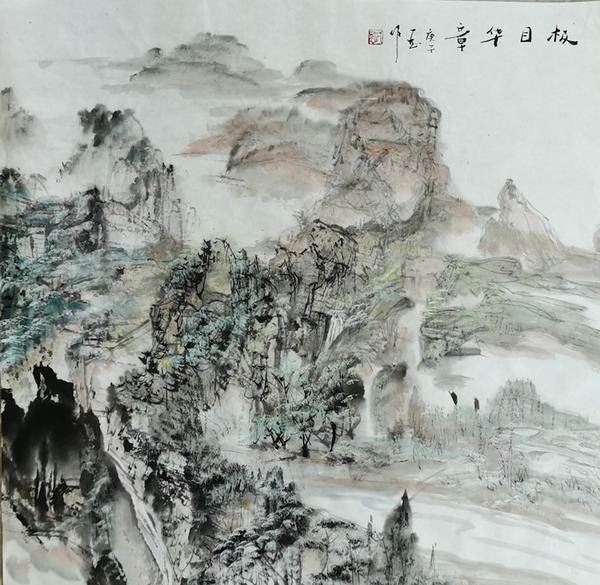 极目华章
庚子